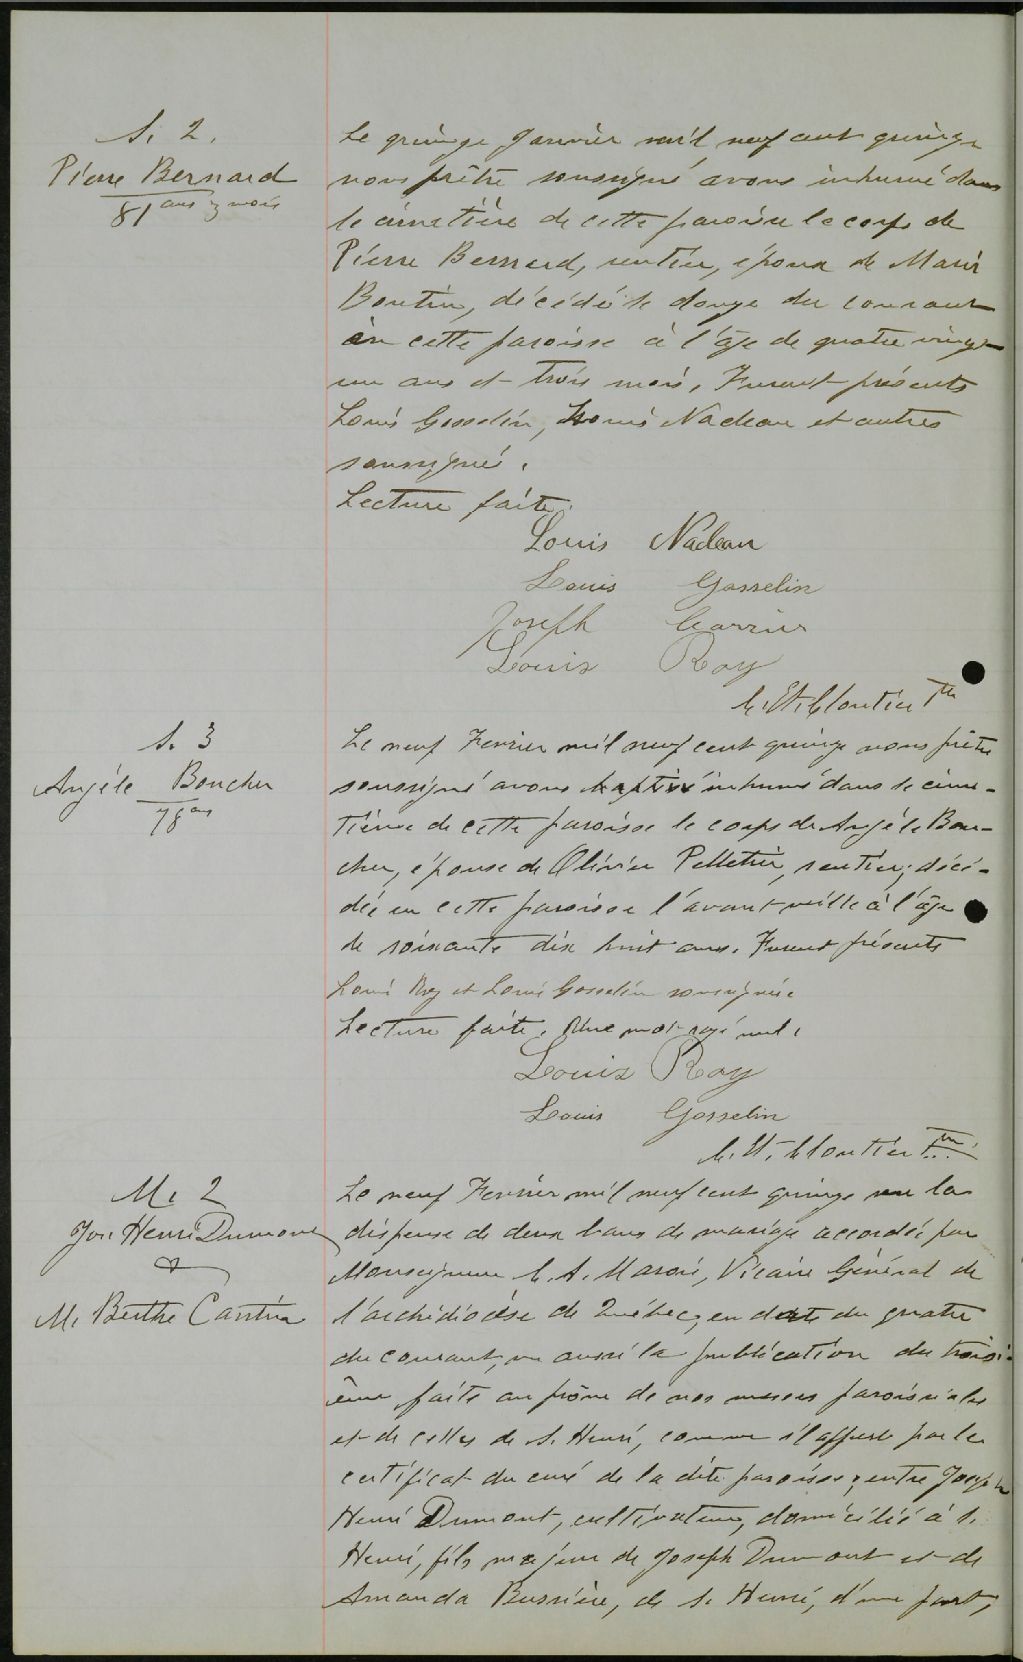 S. 2.
Pierre Bernard
81 ans 3 mois
Le quinze Janvier mil neuf cent quinze
nous prêtre soussigné avons inhumé dans
le cimetière de cette paroisse le corps de
Pierre Bernard, rentier, époux de Marie
Boutin, décédé le douze du courant
en cette paroisse à l'âge de quatre vingt
un ans et trois mois. Furent présents
Louis Gosselin, Louis Nadeau et autres
soussignés.
Lecture faite.
Louis Nadeau
Louis Gosselin
Joseph Carrier
Louis Roy
Cloutier Ptre
S. 3
Angèle Boucher
78 ans
Le neuf Fevrier mil neuf cent quinze nous prêtre
soussigné avons inhumé dans le cime-
tière de cette paroisse le corps de Angèle Bou-
cher, épouse de Olivier Pelletier, rentier, décé-
dée en cette paroisse l'avant veille à l'âge
de soixante dix huit ans. Furent présents
Louis Roy et Louis Gosselin soussignés.
Lecture faite. Un mot rayé nul.
Louis Roy
Louis Gosselin
Cloutier Ptre.
M. 2
Jos. Henri Dumont
&
M. Berthe Cantin
Le neuf Fevrier mil neuf cent quinze vu la
dispense de deux bans de mariage accordée par
Monseigneur C. A. Marois, Vicaire Général de
l'archidiocèse de Québec, en date du quatre
du courant, vu aussi la publication du troisi-
ème faite au prône de nos messes paroissiales
et de celles de S. Henri, comme il appert par le
certificat du curé de la dite paroisse, entre Joseph
Henri Dumont, cultivateur, domicilié à S.
Henri, fils majeur de Joseph Dumont et de
Amanda Bussière, de S. Henri, d'une part,